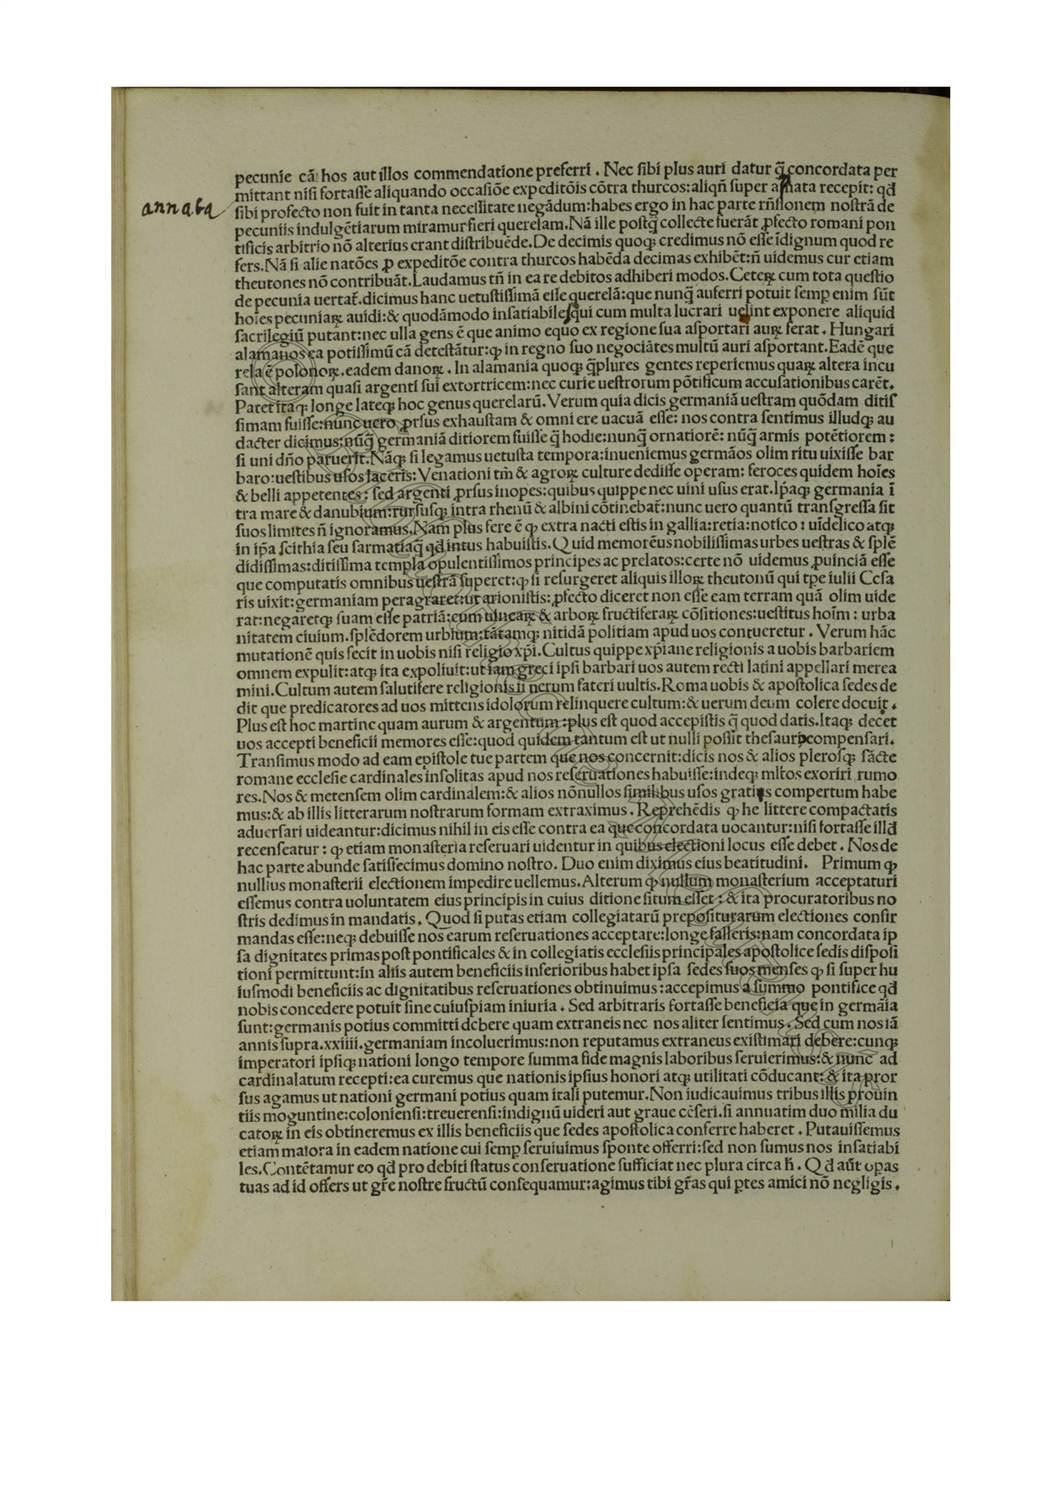 pecunie cā hos aut illos commendatione preferri . Nec sibi plus auri datur q̄ concordata per
mittant nisi fortasse aliquando occasiōe expeditōis cōtra thurcos:aliqn̄ super annata recepit: qđ
annata
sibi profecto non fuit in tanta necessitate negādum:habes ergo in hac parte rn̄sionem nostrā de
pecuniis indulgētiarum miramur fieri querelam.Nā ille postq̄ collecte fuerāt ꝓfecto romani pon
tificis arbitrio nō alterius erant distribuēde.De decimis quoqꝫ credimus nō esse īdignum quod re
fers.Nā si alie natōes ꝓ expeditōe contra thurcos habēda decimas exhibēt:n̄ uidemus cur etiam
theutones nō contribuāt.Laudamus tn̄ in ea re debitos adhiberi modos.Ceteꝝ cum tota questio
de pecunia uertat᷑.dicimus hanc uetustissimā esse querelā:que nunq̄ auferri potuit semꝑ enim sūt
hoīes pecuniaꝝ auidi:& quodāmodo insatiabiles qui cum multa lucrari uelint exponere aliquid
sacrilegiū putant:nec ulla gens ē que animo equo ex regione sua asportari auꝝ ferat . Hungari
alamanos ea potissimū cā detestātur:ꝙ in regno suo negociātes multū auri asportant.Eadē que
rela ē polonoꝝ.eadem danoꝝ . In alamania quoqꝫ q̄plures gentes reperiemus quaꝝ altera incu
sant alteram quasi argenti sui extortricem:nec curie uestrorum pōtificum accusationibus carēt.
Patet itaqꝫ longe lateqꝫ hoc genus querelarū.Verum quia dicis germaniā uestram quōdam ditis
simam fuisse:nunc uero ꝓrsus exhaustam & omni ere uacuā esse: nos contra sentimus illudqꝫ au
dacter dicimus:nūq̄ germaniā ditiorem fuisse q̄ hodie:nunq̄ ornatiorē: nūq̄ armis potētiorem :
si uni dn̄o paruerit.Nāqꝫ si legamus uetusta tempora:inueniemus germāos olim ritu uixisse bar
baro:uestibus usos laceris:Venationi tm̄ & agroꝝ culture dedisse operam: feroces quidem hoīes
& belli appetentes: sed argenti ꝓrsus inopes:quibus quippe nec uini usus erat.Ip̄aqꝫ germania ī
tra mare & danubium:rursusqꝫ intra rhenū & albini cōtinebat᷑:nunc uero quantū transgressa sit
suos limites n̄ ignoramus.Nam plus fere ē ꝙ extra nacti estis in gallia:retia:notico: uīdelico atqꝫ
in ip̄a scithia seu sarmatiaq̄ qđ intus habuistis.Quid memorēus nobilissimas urbes uestras & splē
didissimas:ditissima templa opulentissimos principes ac prelatos:certe nō uidemus ꝓuinciā esse
que computatis omnibus uestrā superet:ꝙ si resurgeret aliquis illoꝝ theutonū qui tꝑe iulii Cesa
ris uixit:germaniam peragraret:ut arionistis:ꝓfecto diceret non esse eam terram quā olim uide
rat:negaretqꝫ suam esse patriā:cum uineaꝝ & arboꝝ fructiferaꝝ cōsitiones:uestitus hoīm : urba
nitatem ciuium.splēdorem urbium:tātamqꝫ nitidā politiam apud uos contueretur . Verum hāc
mutationē quis fecit in uobis nisi religio xp̄i.Cultus quippe xp̄iane religionis a uobis barbariem
omnem expulit:atqꝫ ita expoliuit:ut iam greci ipsi barbari uos autem recti latini appellari merea
mini.Cultum autem salutifere religionis ii nerum fateri uultis.Roma uobis & apostolica sedes de
dit que predicatores ad uos mittens idolorum relinquere cultum:& uerum deum colere docuit .
Plus est hoc martine quam aurum & argentum :plus est quod accepistis q̄ quod datis.Itaqꝫ decet
uos accepti beneficii memores esse:quod quidem tantum est ut nulli possit thesauro compensari.
Transimus modo ad eam epistole tue partem que nos concernit:dicis nos & alios plerosqꝫ sācte
romane ecclesie cardinales insolitas apud nos reseruationes habuisse:indeqꝫ ml̄tos exoriri rumo
res.Nos & metensem olim cardinalem:& alios nōnullos similibus usos gratiis compertum habe
mus:& ab illis litterarum nostrarum formam extraximus . Reprehēdis ꝙ he littere compactatis
aduersari uideantur:dicimus nihil in eis esse contra ea que concordata uocantur:nisi fortasse illđ
recenseatur : ꝙ etiam monasteria reseruari uidentur in quibus electioni locus esse debet . Nos de
hac parte abunde satisfecimus domino nostro. Duo enim diximus eius beatitudini. Primum ꝙ
nullius monasterii electionem impedire uellemus.Alterum ꝙ nullum monasterium acceptaturi
essemus contra uoluntatem eius principis in cuius ditione situm esset : & ita procuratoribus no
stris dedimus in mandatis . Quod si putas etiam collegiatarū prepositurarum electiones confir
mandas esse:neqꝫ debuisse nos earum reseruationes acceptare:longe falleris:nam concordata ip
sa dignitates primas post pontificales & in collegiatis ecclesiis principales apostolice sedis disposi
tioni permittunt:in aliis autem beneficiis inferioribus habet ipsa sedes suos menses ꝙ si super hu
iusmodi beneficiis ac dignitatibus reseruationes obtinuimus :accepimus a summo pontifice qđ
nobis concedere potuit sine cuiuspiam iniuria . Sed arbitraris fortasse beneficia que in germāia
sunt:germanis potius committi debere quam extraneis nec nos aliter sentimus . Sed cum nos iā
annis supra.xxiiii.germaniam incoluerimus:non reputamus extraneus existimari debere:cunqꝫ
imperatori ipsiqꝫ nationi longo tempore summa fide magnis laboribus seruierimus:& nunc ad
cardinalatum recepti:ea curemus que nationis ipsius honori atqꝫ utilitati cōducant: & ita pror
sus agamus ut nationi germani potius quam itali putemur.Non iudicauimus tribus illis prouin
tiis moguntine:coloniensi:treuerensi:indignū uideri aut graue cēseri.si annuatim duo milia du
catoꝝ in eis obtineremus ex illis beneficiis que sedes apostolica conferre haberet . Putauissemus
etiam maiora in eadem natione cui semꝑ seruiuimus sponte offerri:sed non sumus nos insatiabi
les.Contētamur eo qđ pro debiti status conseruatione sufficiat nec plura circa h̄ . Qđ aūt opas
tuas ad id offers ut gr̄e nostre fructū consequamur:agimus tibi gr̄as qui ꝑtes amici nō negligis .